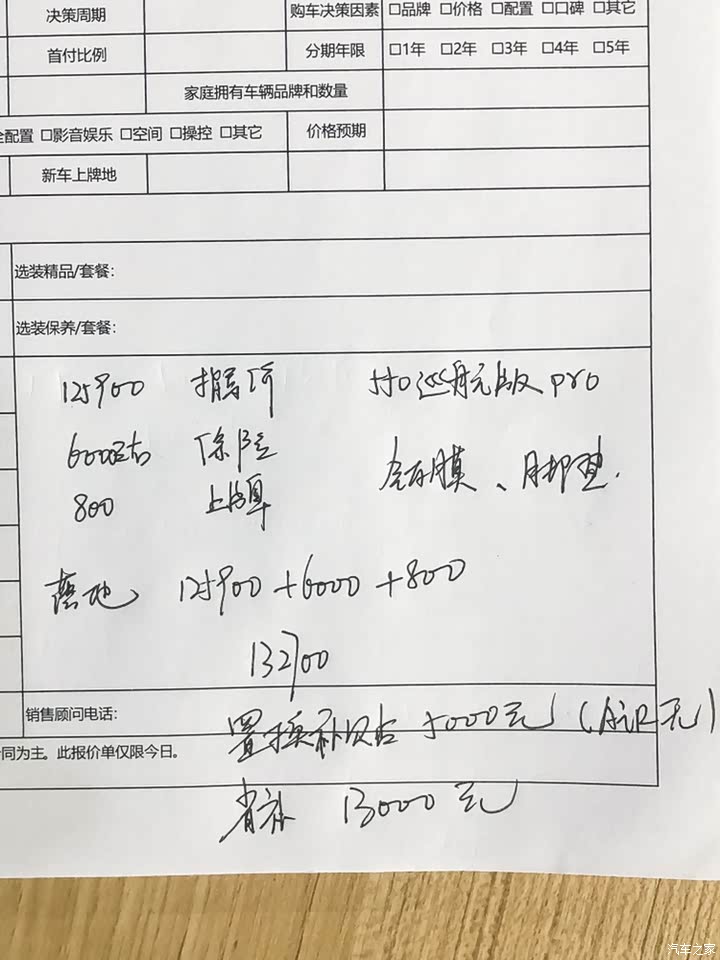 决策周期 购车决策因素 □品牌 □价格 □配置 □口碑 □其它
首付比例 分期年限 □1年 □2年 □3年 □4年 □5年
家庭拥有车辆品牌和数量
全配置 □影音娱乐 □空间 □操控 □其它 价格预期
新车上牌地
选装精品/套餐：
选装保养/套餐：
125900 指导价 510巡航版 pro
6000左右 保险 全车膜、脚垫.
800 上牌
落地 125900+6000+800
132700
销售顾问电话：
置换补贴 5000元 (
同为主。此报价单仅限今日。
省补 13000元
汽车之家